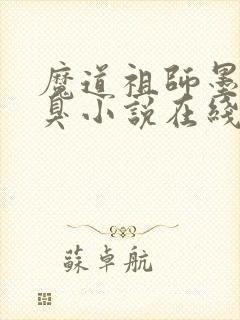 魔道祖師墨
臭小說在綫
蘇卓航